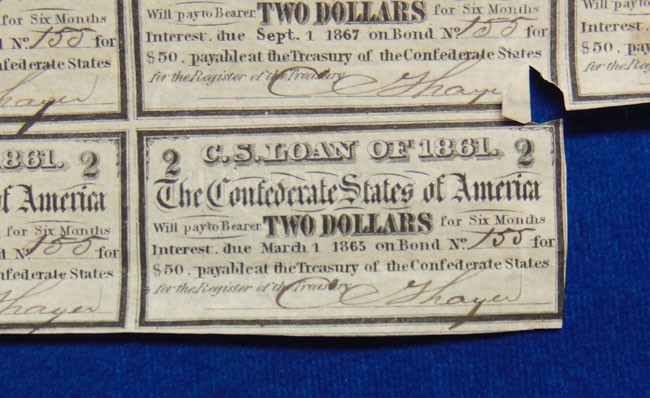 for Six Months
Will pay to Bearer TWO DOLLARS for Six Months
Will pay to
155 for
Interest. due Sept. 1 1867 on Bond No 155 for
Interest. du
$50. payable at the Treasury of the Confederate States
$50. pay
Confederate States
for the Register of the Treasury C Thayer
for the Reg
Thayer
1861. 2
2 C. S. LOAN OF 1861. 2
of America
The Confederate States of America
for Six Months
Will pay to Bearer TWO DOLLARS for Six Months
No 155 for
Interest. due March 1 1865 on Bond No 155 for
nfederate States
$50. payable at the Treasury of the Confederate States
Thayer
for the Register of the Treasury C Thayer